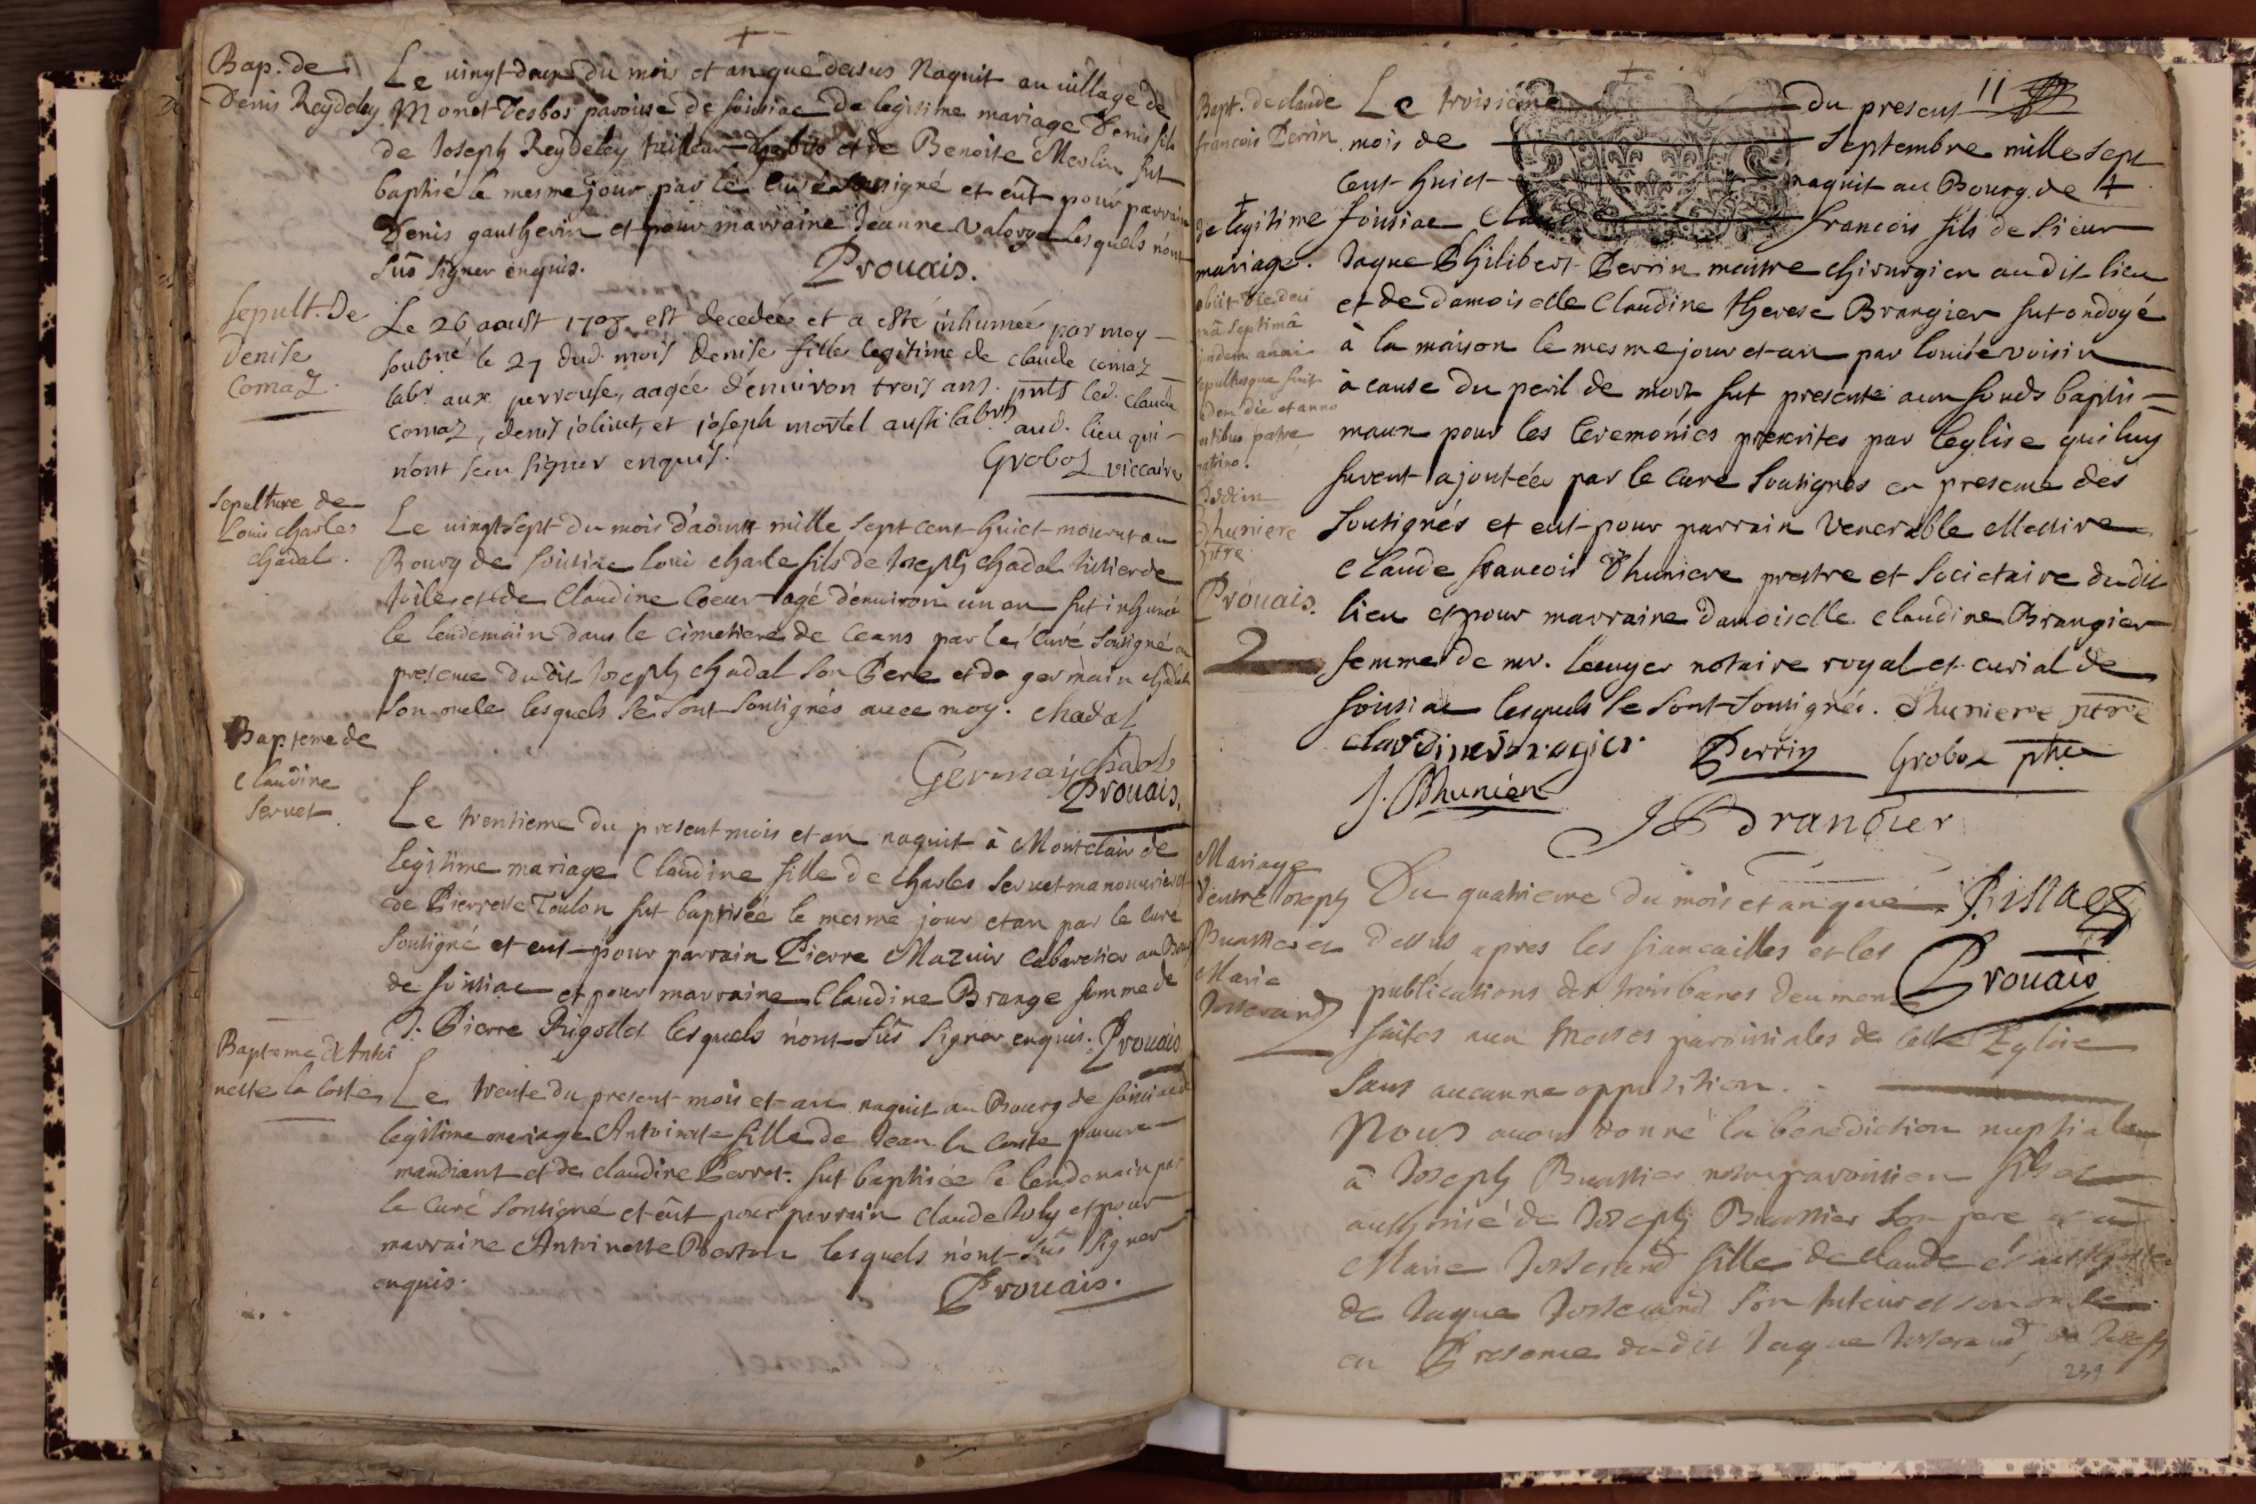 Bap. de
Denis Reydeley
Le vingt-deux du mois et an que dessus Naquit au village de
Monet Desbos paroisse de soissiac de legitime mariage Denis fils
de Joseph Reydeley tailleur d'habits et de Benoite Merlin fut
baptisé le mesme jour par le curé soussigné et eût pour parrain
Denis gautherin et pour marraine Jeanne Valorge lesquels n'ont
sû signer enquis. Prouais.
sepult. De
Denise
Comaz
Le 26 aoust 1708 est decedée et a esté inhumée par moy
soubné le 27 dud. mois denise fille legitime de claude comaz
labr aux perrouse, aagée d'environ trois ans. pnts led. claude
comaz, denis jolivet, et joseph mortel aussi labrs aud. lieu qui
n'ont sceu signer enquis. Groboz viccaire
sepulture de
Louis charles
chadal.
Le vingtsept du mois d'aoust mille sept cent huict mourut au
Bourg de soissiac loui charle fils de Joseph chadal tissier de
toile et de Claudine Coeur agé d'environ un an fut inhumé
le lendemain dans le cimetiere de ceans par le curé soussigné en
presence dudit Joseph chadal son Pere et de germain chadal
son oncle lesquels se sont soussignés avec moy. chadal
Germain chadal
Prouais.
Bapteme de
Claudine
servet
Le trentieme du present mois et an naquit à Montclair de
legitime mariage Claudine fille de charles servet manouvrier et
de Pierrette Toulon fut baptisée le mesme jour et an par le curé
soussigné et eut pour parrain Pierre Mazuir cabaretier au Bourg
de soissiac et pour marraine Claudine Brange femme de
Pierre Rigollet lesquels n'ont sû signer enquis. Prouais
Bapteme d'Antoi
nette la coste
Le trente du present mois et an naquit au Bourg de soissiac de
legitime mariage Antoinete fille de Jean la coste pauvre
mandiant et de claudine Perret. fut baptisée le lendemain par
le curé soussigné et eût pour parrain claude Joly et pour
marraine Antoinette Berton lesquels n'ont sû signer
enquis. Prouais.
11
Bapt. de claude
francois Perrin
Le troisieme du present
mois de septembre mille sept
cent huict naquit au Bourg de +
+ de legitime
mariage.
soissiac Claude francois fils de sieur
Jaque Philibert Perrin maitre chirurgien audit lieu
et de damoiselle Claudine therese Brangier fut ondoyé
à la maison le mesme jour et an par louise voisin
à cause du peril de mort fut presenté aux fonds baptis=
maux pour les ceremonies prescrites par l'eglise qui luy
furent ajoutées par le curé soussignés en presence des
soussignés et eut pour parrain Venerable Messire
Claude francois Dhuniere prestre et societaire dudit
lieu et pour marraine damoiselle claudine Brangier
femme de mr. lecuyer notaire royal et curial de
soissiac lesquels se sont soussignés. Dhuniere ptre
obiit die
septimâ
eadem die et anno
patre
patrino.
Dhuniere
ptre
Prouais.
claudine brangier Perrin Groboz ptre
J. Dhunier
J B Brangier
Mariage
d'entre Joseph
Buattier et
Marie
Josserand
Du quatrieme du mois et an que
dessus apres les fiancailles et les
publications des trois bancs deument
faites aux Messes paroissiales de cette Eglise
sans aucunne opposition.
Nous avons donné la benediction nuptiale
à Joseph Buattier notre paroissien fils et
authorisé de Joseph Buattier son pere et a
Marie Josserand fille de Claude et authorisée
de Jaque Josserand son tuteur et son oncle
en Presence dudit Jaque Josserand, de Joseph
Prouais
239